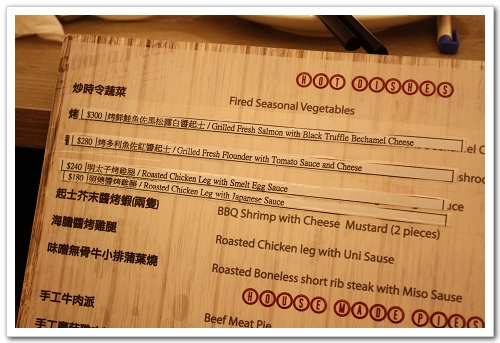 HOT DISHES
炒時令蔬菜
Fired Seasonal Vegetables
烤 $300 烤鮮鮭魚佐黑松露白醬起士 / Grilled Fresh Salmon with Black Truffle Bechamel Cheese
$280 烤多利魚佐紅醬起士 / Grilled Fresh Flounder with Tomato Sauce and Cheese
$240 明太子烤雞腿 / Roasted Chicken Leg with Smelt Egg Sauce
$180 照燒醬烤雞腿 / Roasted Chicken Leg with Japanese Sauce
起士芥末醬烤蝦(兩隻)
BBQ Shrimp with Cheese Mustard (2 pieces)
海膽醬烤雞腿
Roasted Chicken leg with Uni Sause
味噌無骨牛小排蒲葉燒
Roasted Boneless short rib steak with Miso Sause
HOUSE MADE PIES
手工牛肉派
Beef Meat Pie